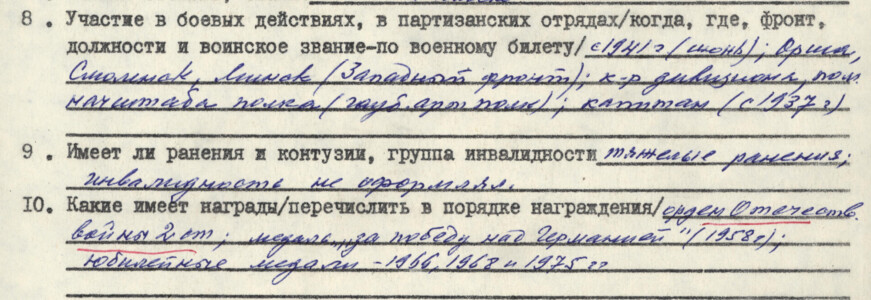 8. Участие в боевых действиях, в партизанских отрядах/когда, где, фронт,
должности и воинское звание-по военному билету/ с 1941 г (июнь); Орша,
Смоленск, Минск (Западный фронт); к-р дивизиона, пом.
начштаба полка (гауб. арт полк); капитан (с 1937 г)
9. Имеет ли ранения и контузии, группа инвалидности тяжелые ранения;
инвалидность не оформлял.
10. Какие имеет награды/перечислить в порядке награждения/ орден Отечеств.
войны 2 ст; медаль „за победу над Германией" (1958 г);
юбилейные медали - 1966, 1968 и 1975 гг